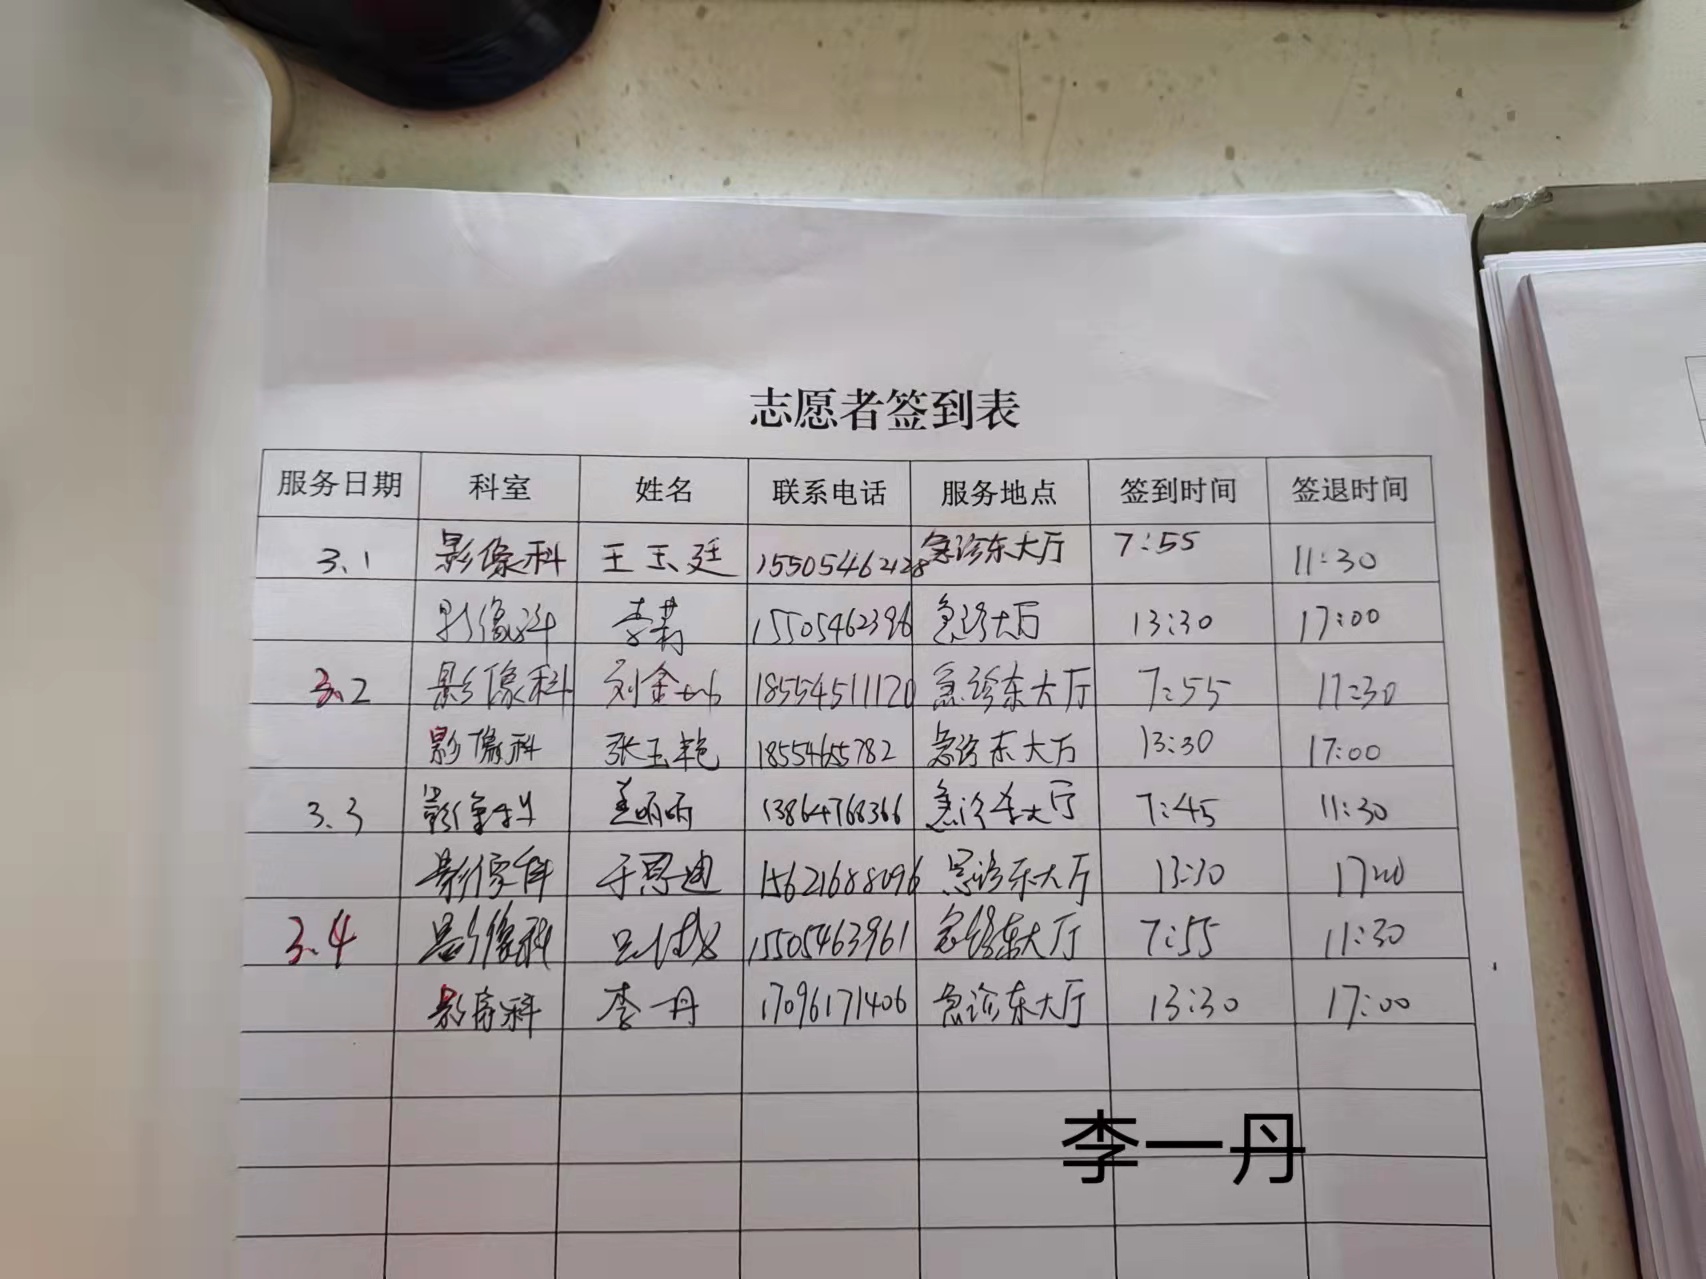 志愿者签到表
服务日期 科室 姓名 联系电话 服务地点 签到时间 签退时间
3.1 影像科 王玉廷 15505462128 急诊东大厅 7:55 11:30
影像科 李莉 15505462396 急诊大厅 13:30 17:00
3.2 影像科 刘金 18554511120 急诊东大厅 7:55 11:30
影像科 张玉艳 1855465782 急诊东大厅 13:30 17:00
3.3 影像科 13864768366 急诊东大厅 7:45 11:30
影像科 于恩迪 15621688096 急诊东大厅 13:30 17:00
3.4 影像科 15505463961 急诊东大厅 7:55 11:30
影像科 李一丹 17096171406 急诊东大厅 13:30 17:00
李一丹